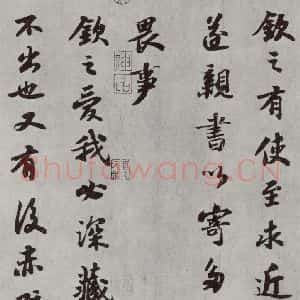 欽之有使至求近
遂親書以寄多
畏事
欽之愛我必深藏
不出也又有後赤
Shufawang.CN